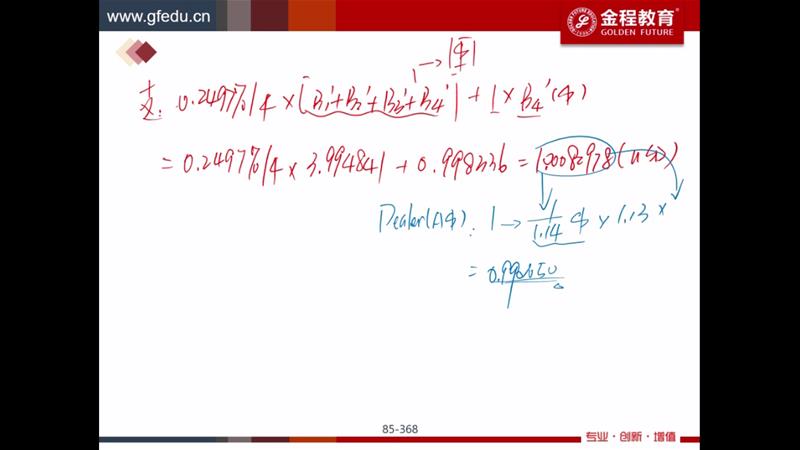 www.gfedu.cn
金程教育
GOLDEN FUTURE
→ |中|
支: 0.2497%/4 × [B₁'+B₂'+B₃'+B₄'] + 1 × B₄' (中)
= 0.2497%/4 × 3.994841 + 0.998336 = 1.00082978 (
Dealer(A中): 1 → 1/1.14 中 × 1.13 ×
= 0.99
85-368
专业·创新·增值